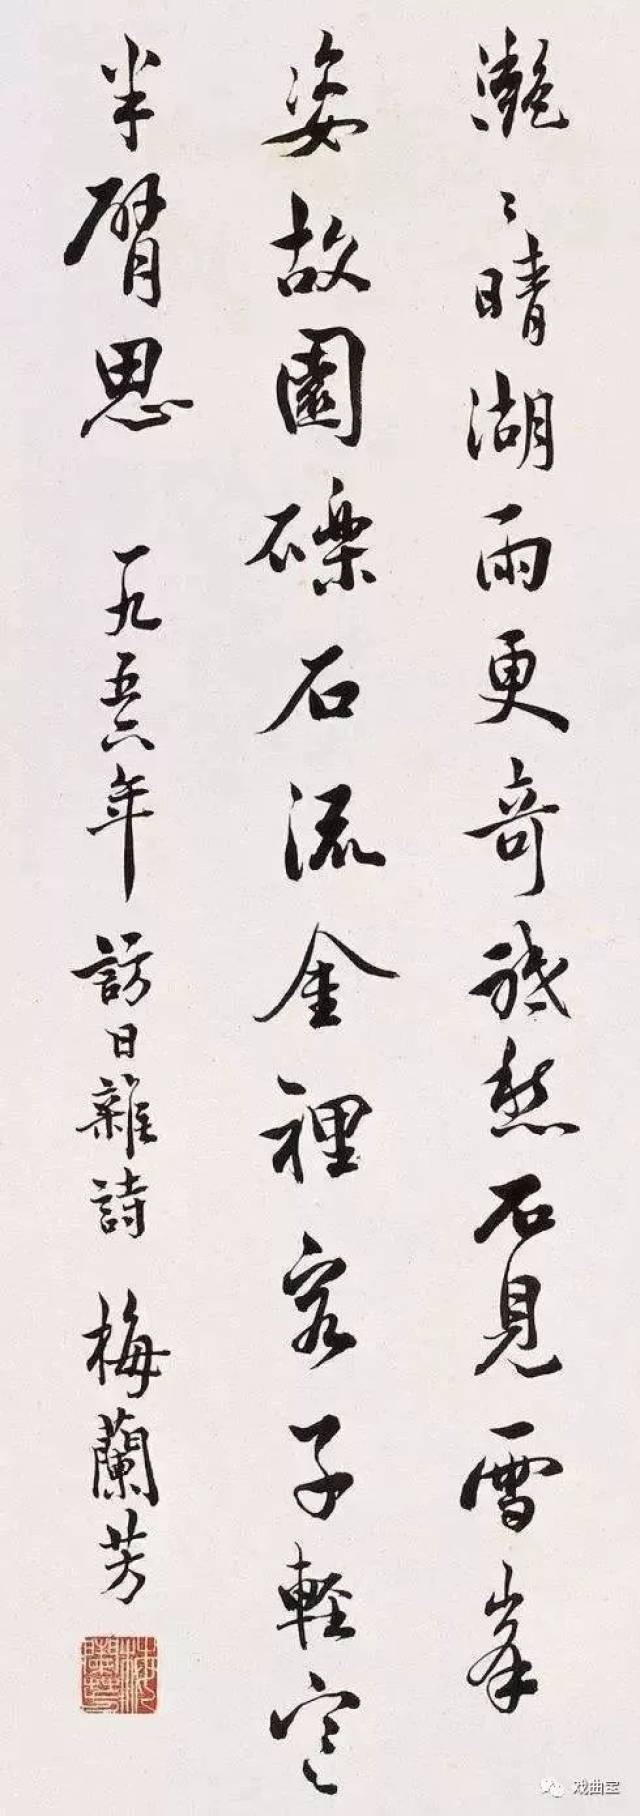 灧〻晴湖雨更奇祇愁不見雪峯
姿故園礫石流金裡客子輕寒
半臂思 一九五六年 訪日雜詩 梅蘭芳
梅蘭芳
戏曲宝